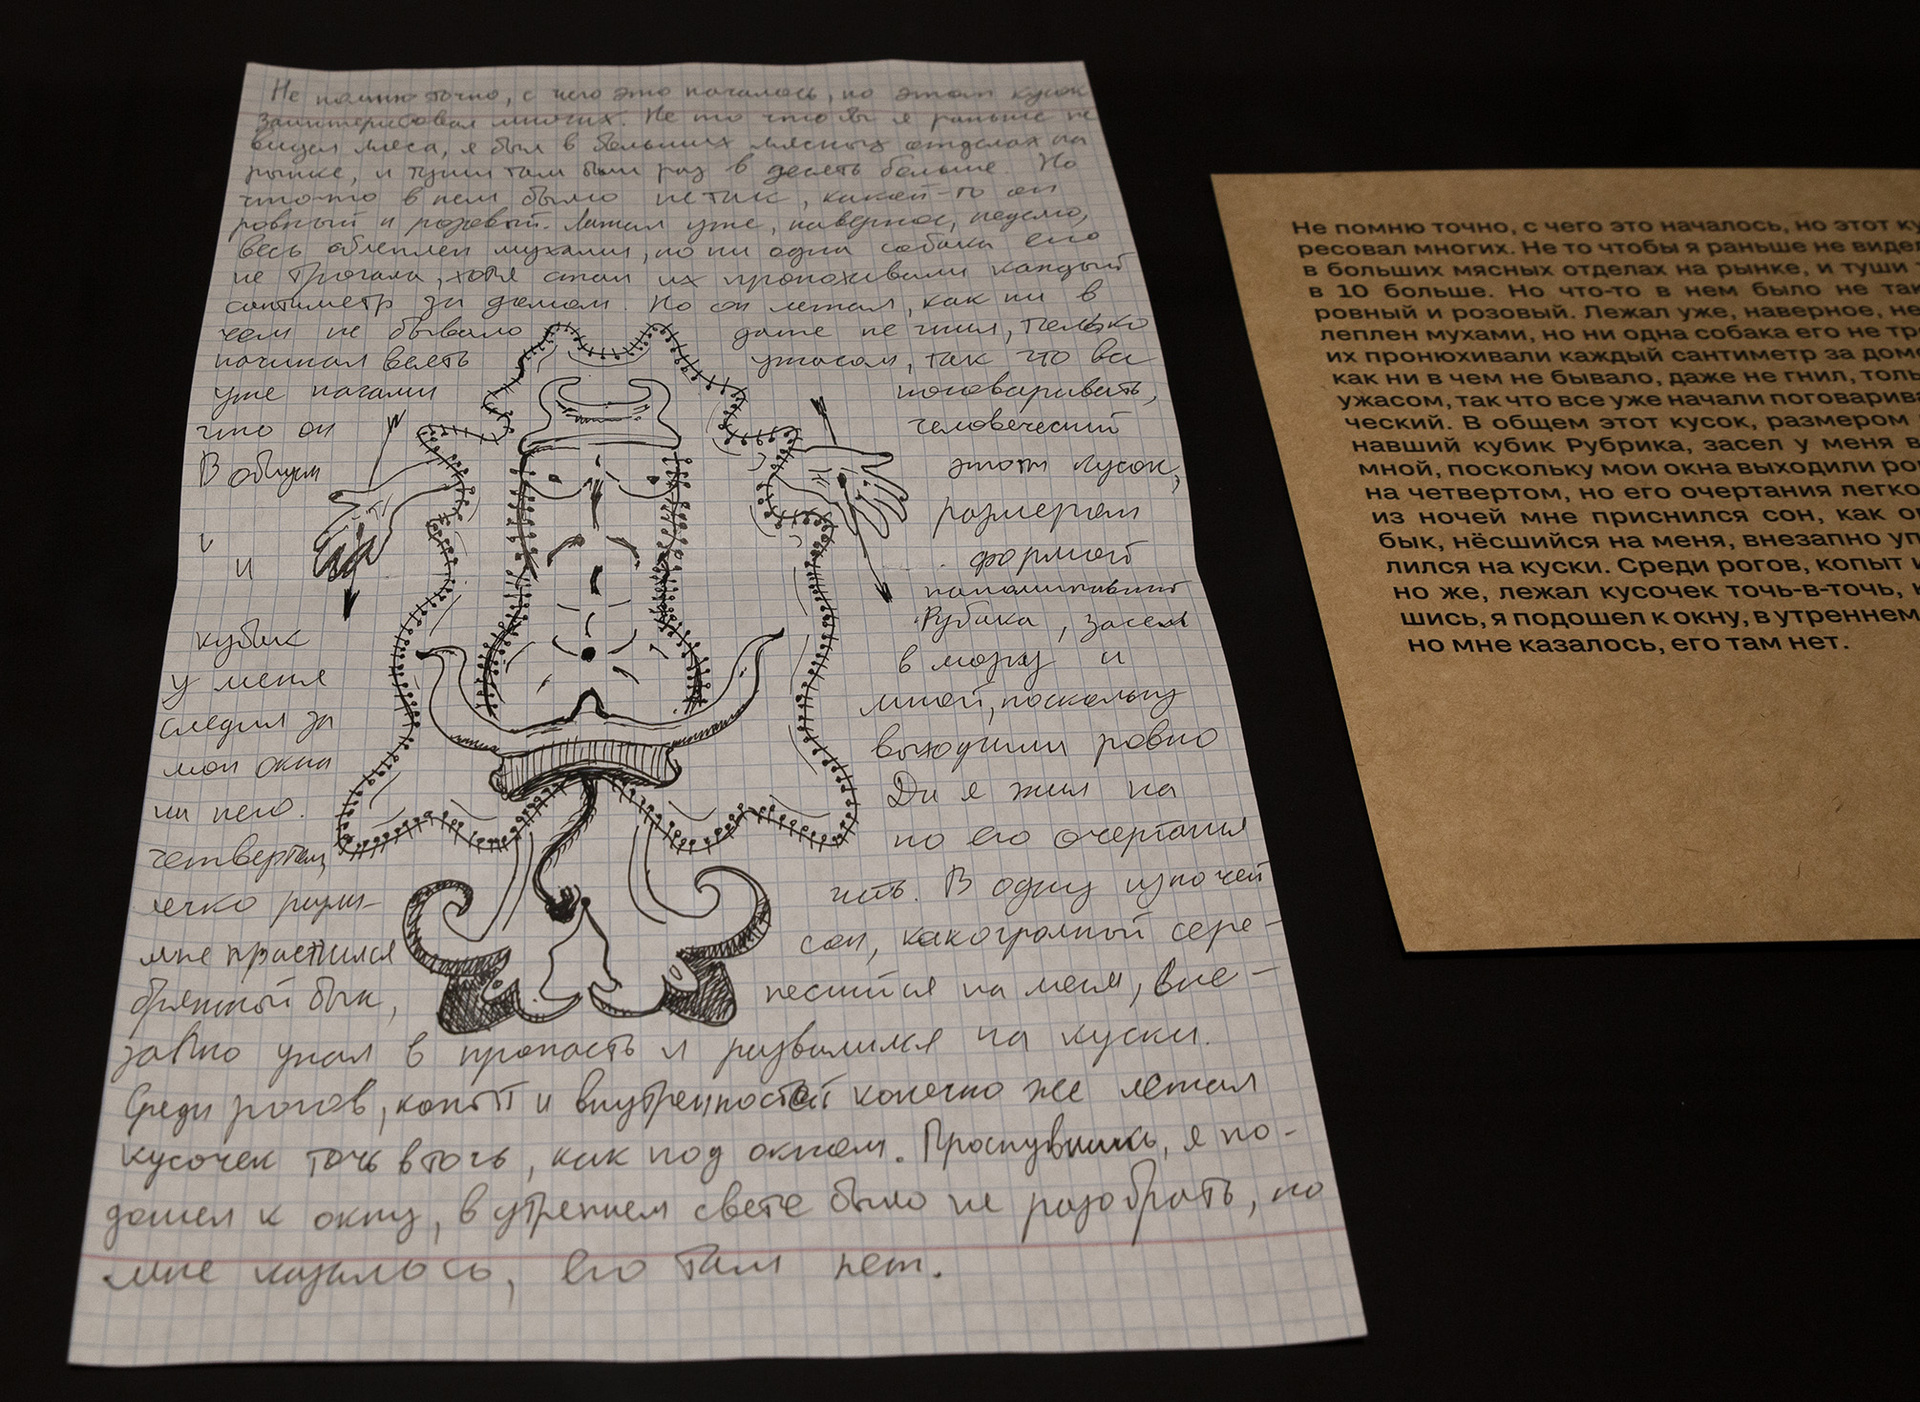 Не помню точно, с чего это началось, но этот кусок
заинтересовал многих. Не то что бы я раньше не
видел мяса, я был в больших мясных отделах на
рынке, и туши там были раз в десять больше. Но
что-то в нем было не так, какой-то он
ровный и розовый. Лежал уже, наверное, неделю,
весь облеплен мухами, но ни одна собака его
не трогала, хотя стаи их пронюхивали каждый
сантиметр за домом. Но он лежал, как ни в
чем не бывало даже не гнил, только
начинал веять ужасом, так что все
уже начали поговаривать,
что он человеческий
В общем этот кусок,
размером
и формой
напоминавший
кубик Рубика, засел
у меня в мозгу и
следил за мной, поскольку
мои окна выходили ровно
на него. Да я жил на
четвертом, но его очертания
легко разли- чить. В одну из ночей
мне приснился сон, как огромной сере-
брянный бык, несшийся на меня, вне-
запно упал в пропасть и развалился на куски.
Среди рогов, копыт и внутренностей конечно же лежал
кусочек точь в точь, как под окном. Проснувшись, я по-
дошел к окну, в утреннем свете было не разобрать, но
мне казалось, его там нет.
Не помню точно, с чего это началось, но этот ку
ресовал многих. Не то чтобы я раньше не видел
в больших мясных отделах на рынке, и туши
в 10 больше. Но что-то в нем было не так
ровный и розовый. Лежал уже, наверное, не
леплен мухами, но ни одна собака его не тр
их пронюхивали каждый сантиметр за дом
как ни в чем не бывало, даже не гнил, толь
ужасом, так что все уже начали поговарива
ческий. В общем этот кусок, размером
навший кубик Рубрика, засел у меня в
мной, поскольку мои окна выходили ро
на четвертом, но его очертания легко
из ночей мне приснился сон, как о
бык, нёсшийся на меня, внезапно уп
лился на куски. Среди рогов, копыт и
но же, лежал кусочек точь-в-точь, к
шись, я подошел к окну, в утреннем
но мне казалось, его там нет.